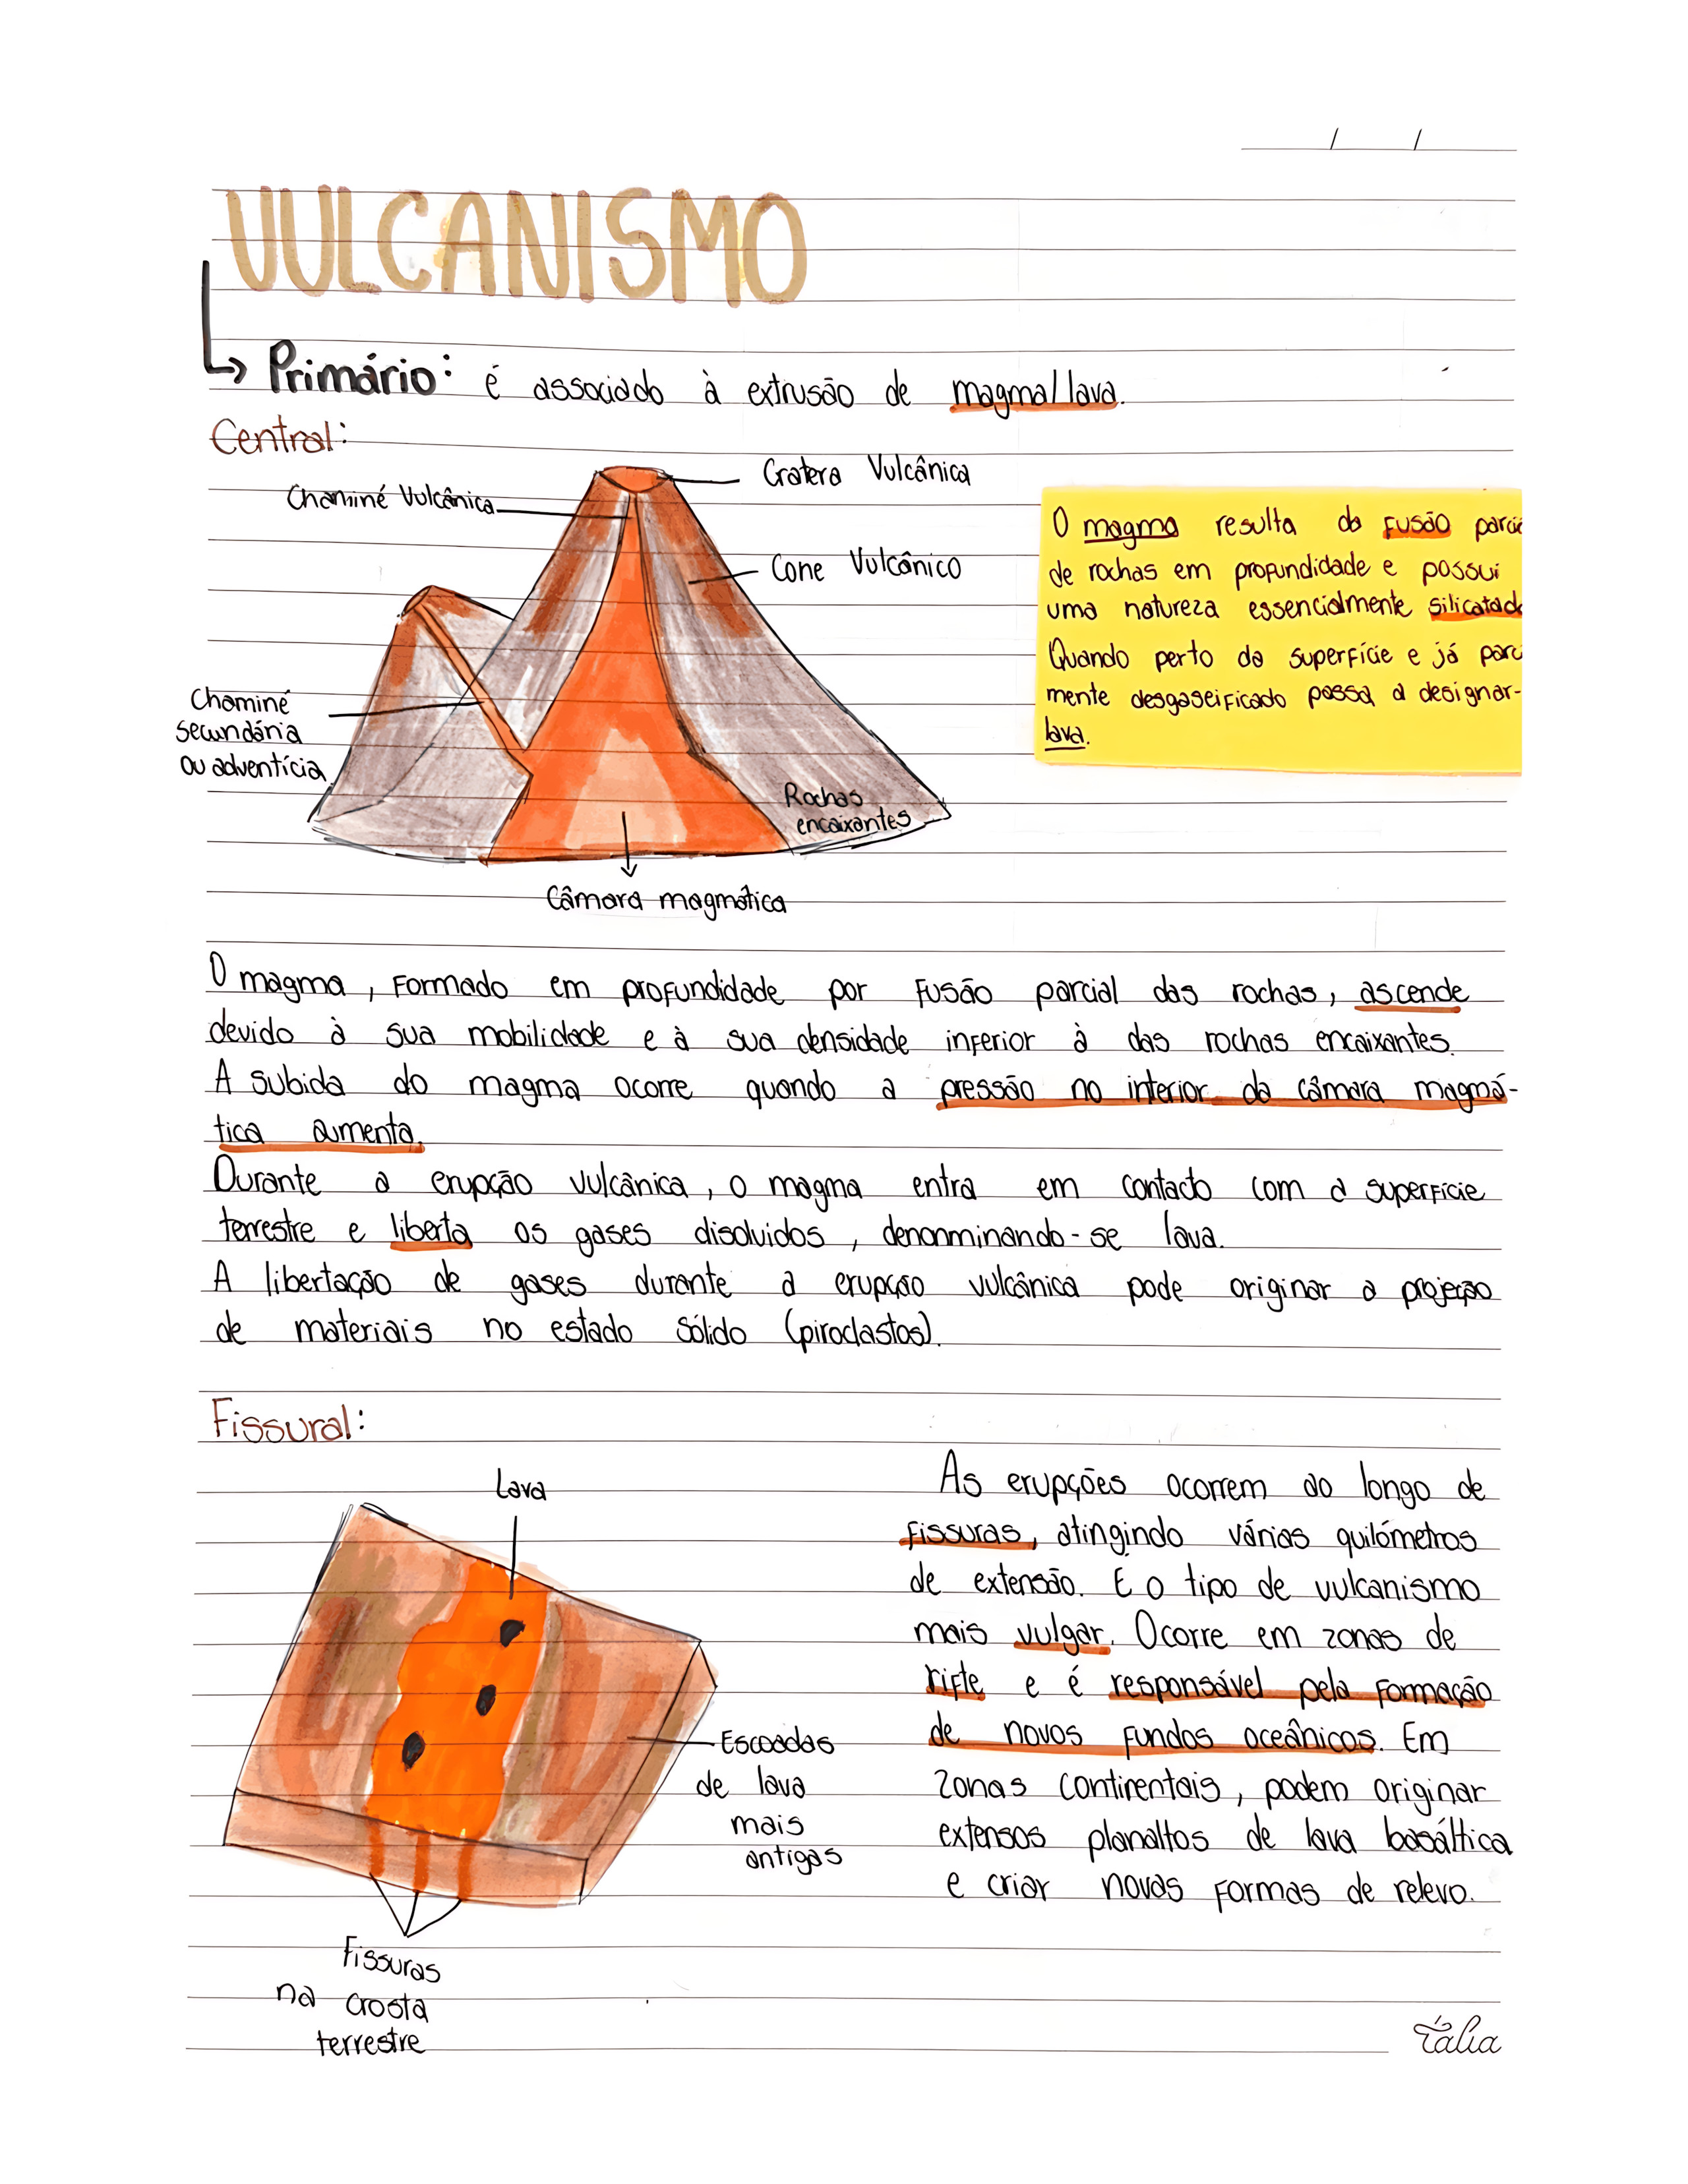 / /
VULCANISMO
↳ Primário: é associado à extrusão de magma/lava.
Central:
Cratera Vulcânica
Chaminé Vulcânica
Cone Vulcânico
Chaminé
secundária
ou adventícia
Rochas
encaixantes
Câmara magmática
O magma resulta da fusão parcia
de rochas em profundidade e possui
uma natureza essencialmente silicatada
Quando perto da superfície e já parc
mente desgaseificado passa a designar-
lava.
O magma, formado em profundidade por fusão parcial das rochas, ascende
devido à sua mobilidade e à sua densidade inferior à das rochas encaixantes.
A subida do magma ocorre quando a pressão no interior da câmara magmá-
tica aumenta.
Durante a erupção vulcânica, o magma entra em contacto com a superfície
terrestre e liberta os gases disolvidos, denonminando-se lava.
A libertação de gases durante a erupção vulcânica pode originar a projeção
de materiais no estado sólido (piroclastos).
Fissural:
Lava
Escoadas
de lava
mais
antigas
Fissuras
na crosta
terrestre
As erupções ocorrem ao longo de
fissuras, atingindo várias quilómetros
de extensão. É o tipo de vulcanismo
mais vulgar. Ocorre em zonas de
rifte e é responsável pela formação
de novos fundos oceânicos. Em
zonas continentais, podem originar
extensos planaltos de lava basáltica
e criar novas formas de relevo.
tália